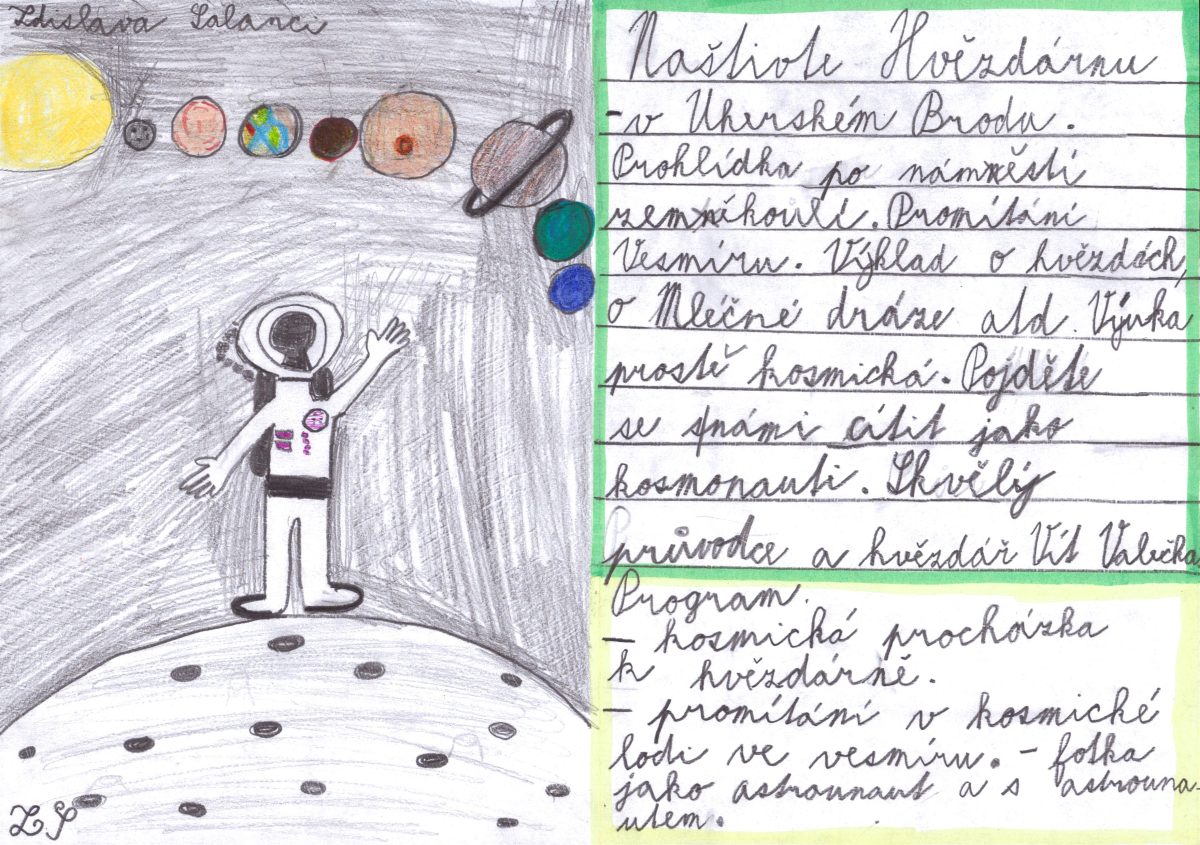 Zdislava Salanci
Naštivte Hvězdárnu
-v Uherském Brodu.
Prohlídka po náměstí
zeměkoulí. Promítání
Vesmíru. Výklad o hvězdách,
o Mléčné dráze atd. Výuka
prostě kosmická. Pojděte
se snámi cítit jako
kosmonauti. Skvělý
průvodce a hvězdář Vít
Program.
- kosmická procházka
k hvězdárně.
- promítání v kosmické
lodi ve vesmíru. - fotka
jako astrounaut a s astrouna-
utem.
ZS